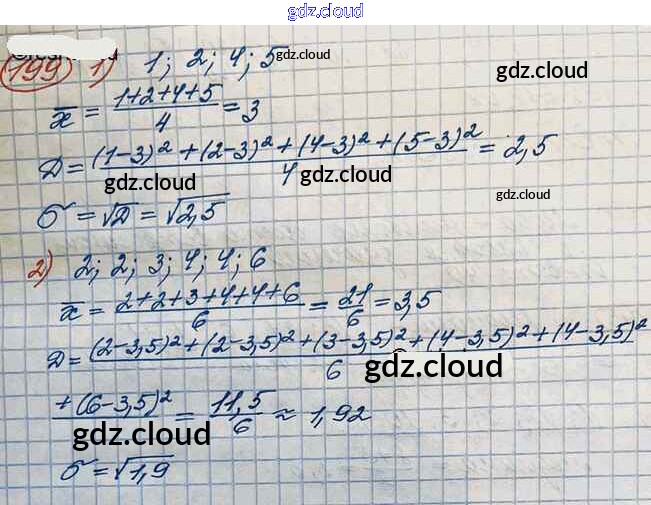 gdz.cloud
199 1) 1; 2; 4; 5 gdz.cloud
gdz.cloud
x̄ = (1+2+4+5)/4 = 3
gdz.cloud
D = ((1-3)² + (2-3)² + (4-3)² + (5-3)²)/4 = 2,5
gdz.cloud gdz.cloud
σ = √D = √2,5 gdz.cloud
2) 2; 2; 3; 4; 4; 6
x̄ = (2+2+3+4+4+6)/6 = 21/6 = 3,5
D = ((2-3,5)² + (2-3,5)² + (3-3,5)² + (4-3,5)² + (4-3,5)²/6
gdz.cloud
+ (6-3,5)² = 11,5/6 ≈ 1,92
gdz.cloud
σ = √1,9